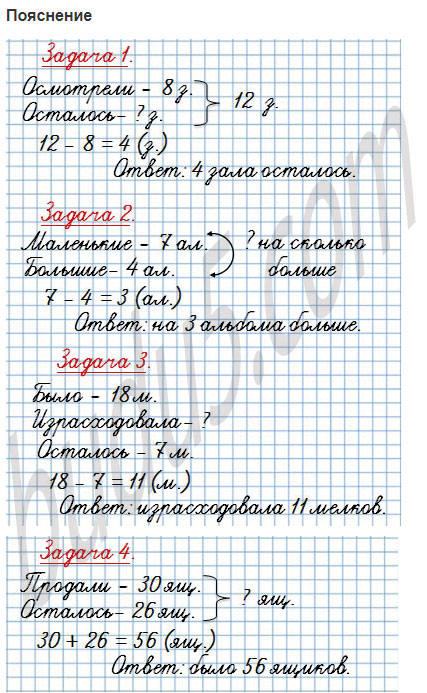 Пояснение
Задача 1.
Осмотрели - 8 з.
Осталось - ? з.
12 з.
12 - 8 = 4 (з.)
Ответ: 4 зала осталось.
Задача 2.
Маленькие - 7 ал.
Большие - 4 ал.
? на сколько
больше
7 - 4 = 3 (ал.)
Ответ: на 3 альбома больше.
Задача 3.
Было - 18 м.
Израсходовала - ?
Осталось - 7 м.
18 - 7 = 11 (м.)
Ответ: израсходовала 11 мелков.
Задача 4.
Продали - 30 ящ.
Осталось - 26 ящ.
? ящ.
30 + 26 = 56 (ящ.)
Ответ: было 56 ящиков.